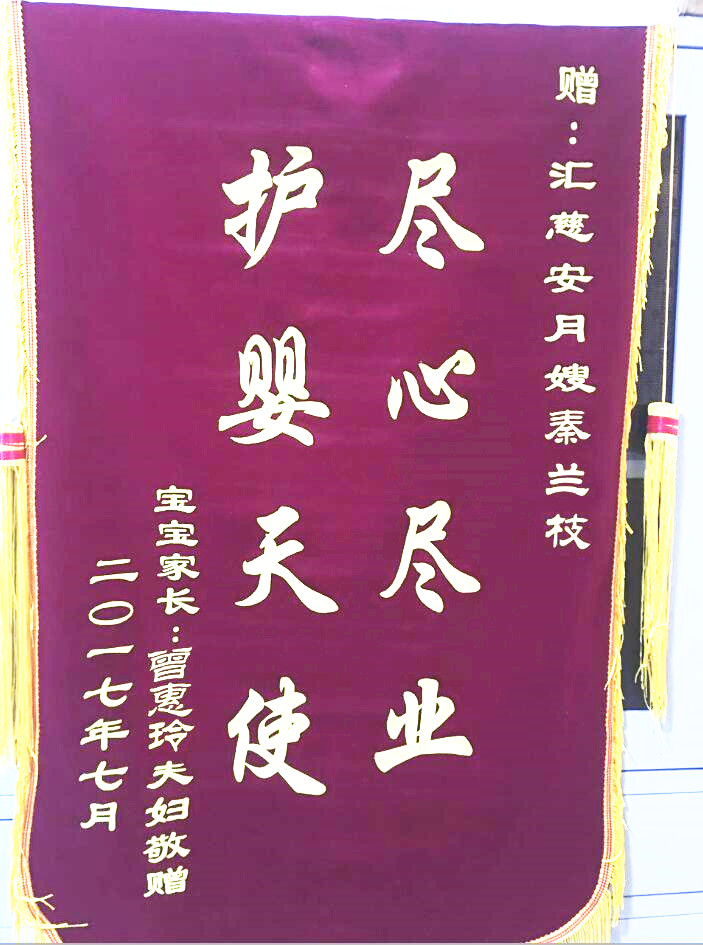 赠：汇慈安月嫂秦兰枝
尽心尽业
护婴天使
宝宝家长：曾惠玲夫妇敬赠
二〇一七年七月